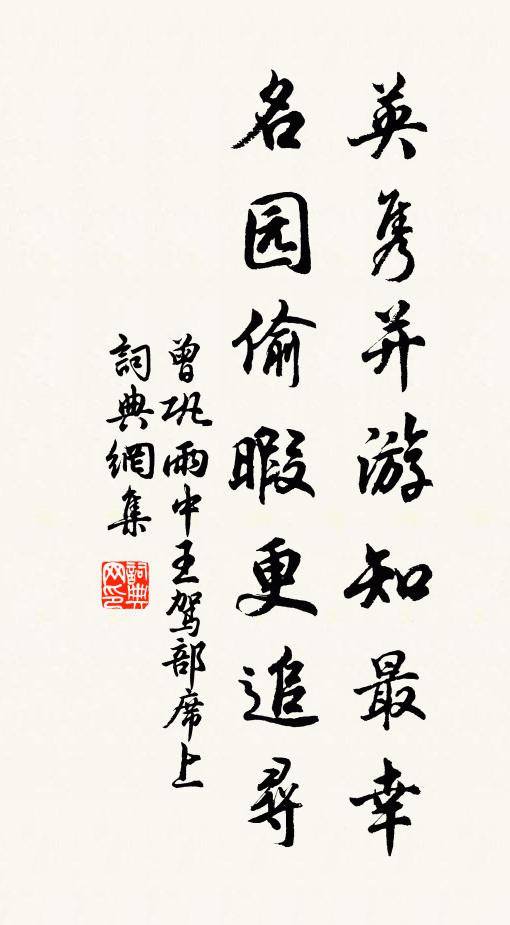 英隽并游知最幸
名园偷暇更追尋
曾巩雨中王駕部席上
詞典網集
詞典网印